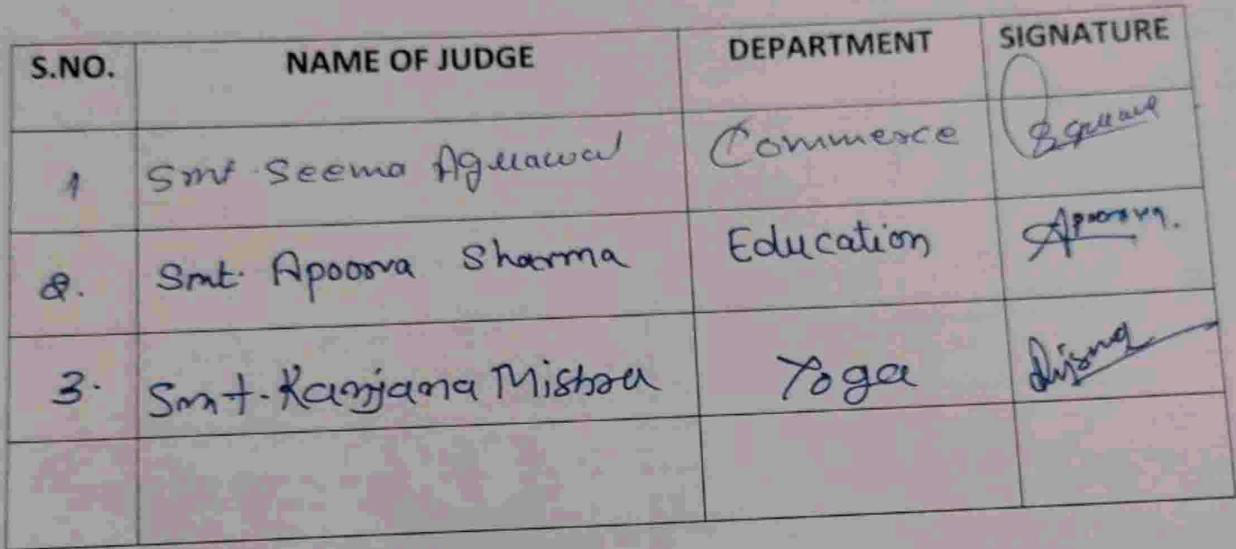 S.NO. NAME OF JUDGE DEPARTMENT SIGNATURE
1 Smt Seema Agrawal Commerce
2. Smt. Apoorva Sharma Education Apoorva.
3. Smt. Ranjana Mishra Yoga